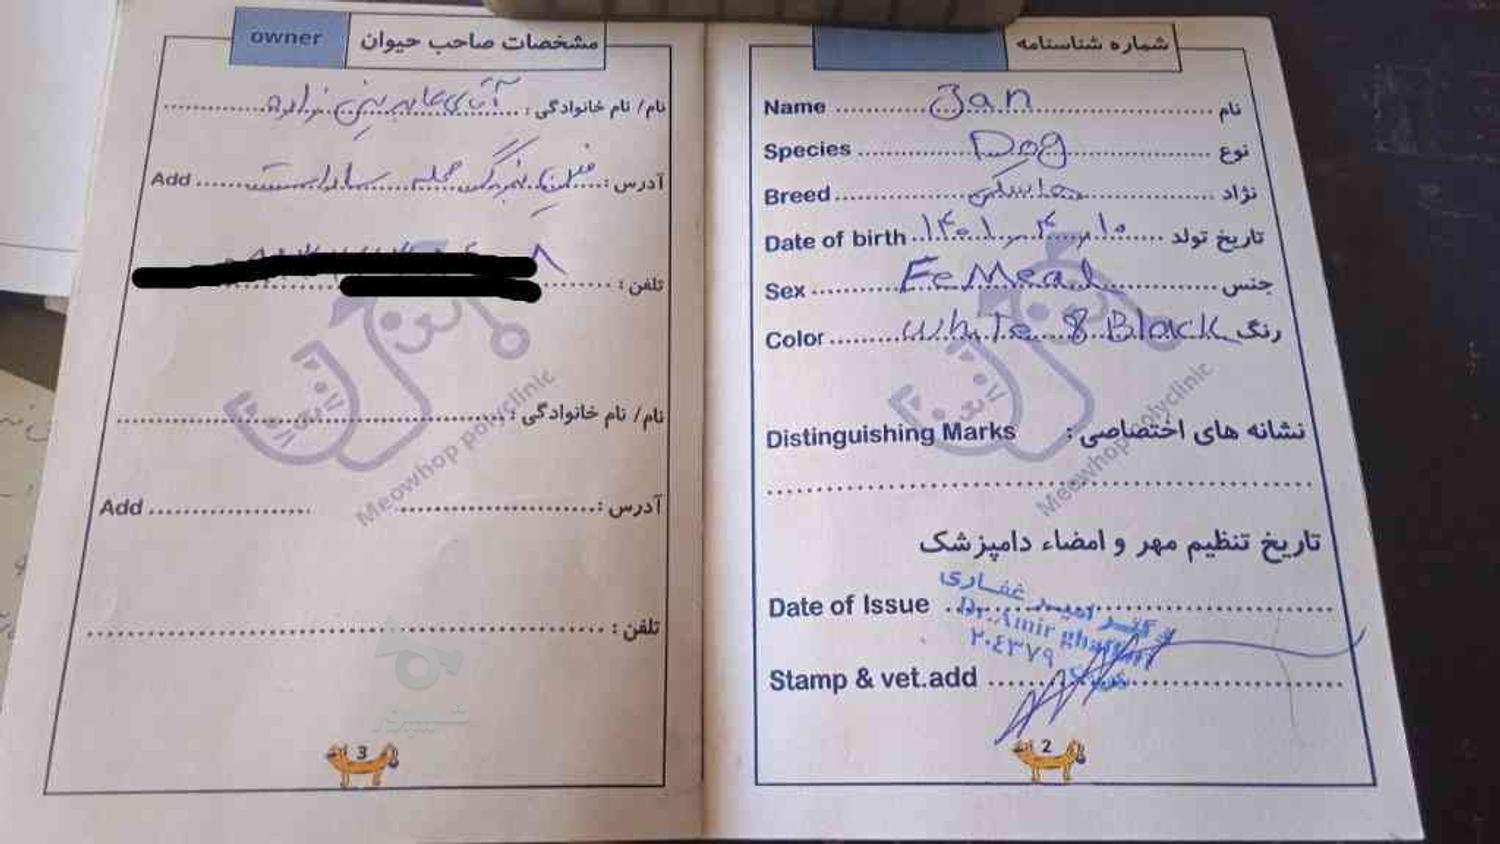 شماره شناسنامه
Name Jan نام
Species Dog نوع
Breed هاسکی نژاد
Date of birth ۱۴۰۱ ۴ ۱۰ تاریخ تولد
Sex FeMeal جنس
Color white & Black رنگ
Distinguishing Marks نشانه های اختصاصی :
تاریخ تنظیم مهر و امضاء دامپزشک
Date of Issue
دکتر امیر غفاری
Dr. Amir ghaffari
۲۰٤۳۷۹
Stamp & vet.add
Meowhop polyclinic
2
owner مشخصات صاحب حیوان
نام/ نام خانوادگی : آقای
Add آدرس : بزرگ محله سادات
تلفن :
نام/ نام خانوادگی :
Add آدرس :
تلفن :
Meowhop polyclinic
شیپور
3